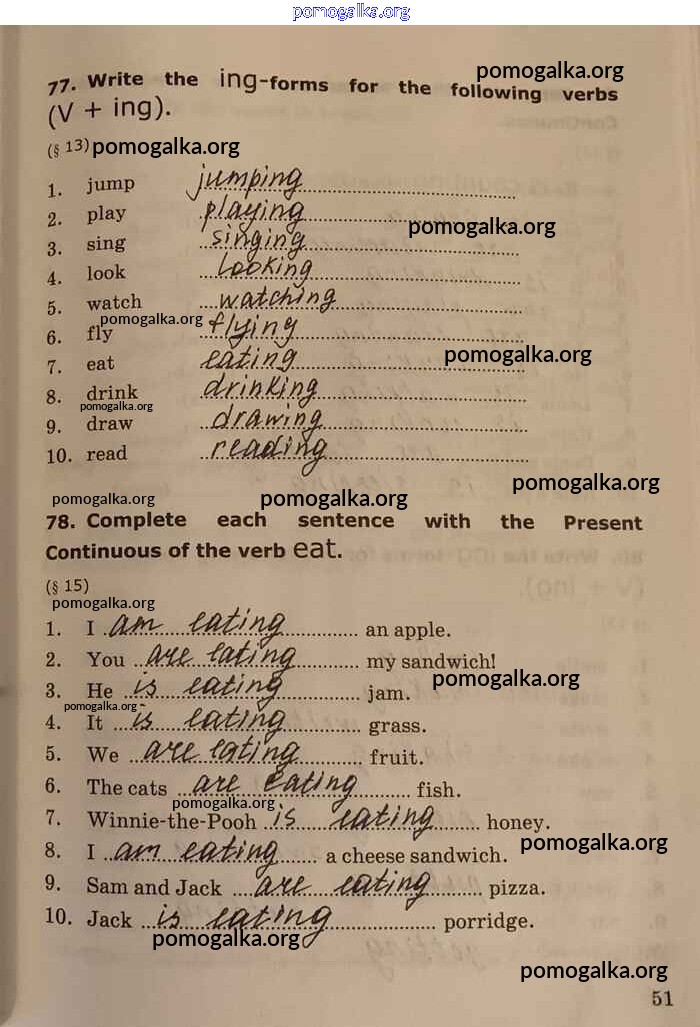 pomogalka.org
77. Write the ing-forms for the following verbs
pomogalka.org
(V + ing).
(§ 13) pomogalka.org
1. jump jumping
2. play playing
pomogalka.org
3. sing singing
4. look looking
5. watch watching
pomogalka.org
6. fly flying
7. eat eating
pomogalka.org
8. drink drinking
pomogalka.org
9. draw drawing
10. read reading
pomogalka.org
pomogalka.org pomogalka.org
78. Complete each sentence with the Present
Continuous of the verb eat.
(§ 15)
pomogalka.org
1. I am eating an apple.
2. You are eating my sandwich!
3. He is eating jam.
pomogalka.org
pomogalka.org
4. It is eating grass.
5. We are eating fruit.
6. The cats are eating fish.
pomogalka.org
7. Winnie-the-Pooh is eating honey.
pomogalka.org
8. I am eating a cheese sandwich.
9. Sam and Jack are eating pizza.
10. Jack is eating porridge.
pomogalka.org
pomogalka.org
51